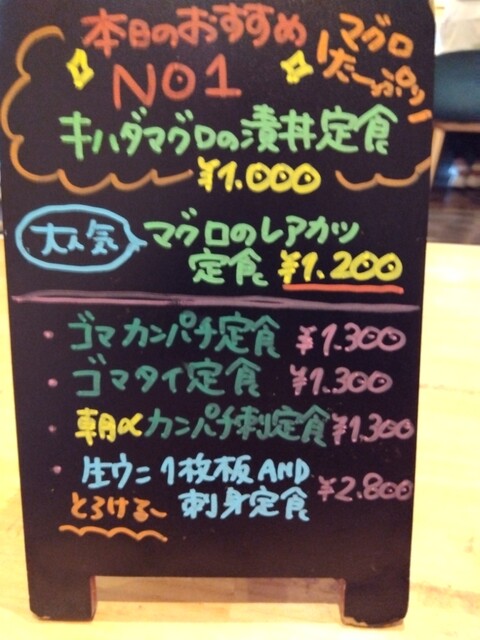 本日のおすすめ
NO1
マグロ
たーぷりー
キハダマグロの漬丼定食
¥1.000
大人気
マグロのレアカツ
定食 ¥1.200
・ゴマカンパチ定食 ¥1.300
・ゴマタイ定食 ¥1.300
・朝〆カンパチ刺定食 ¥1.300
・生ウニ1枚板AND
とろける〜 刺身定食 ¥2.800